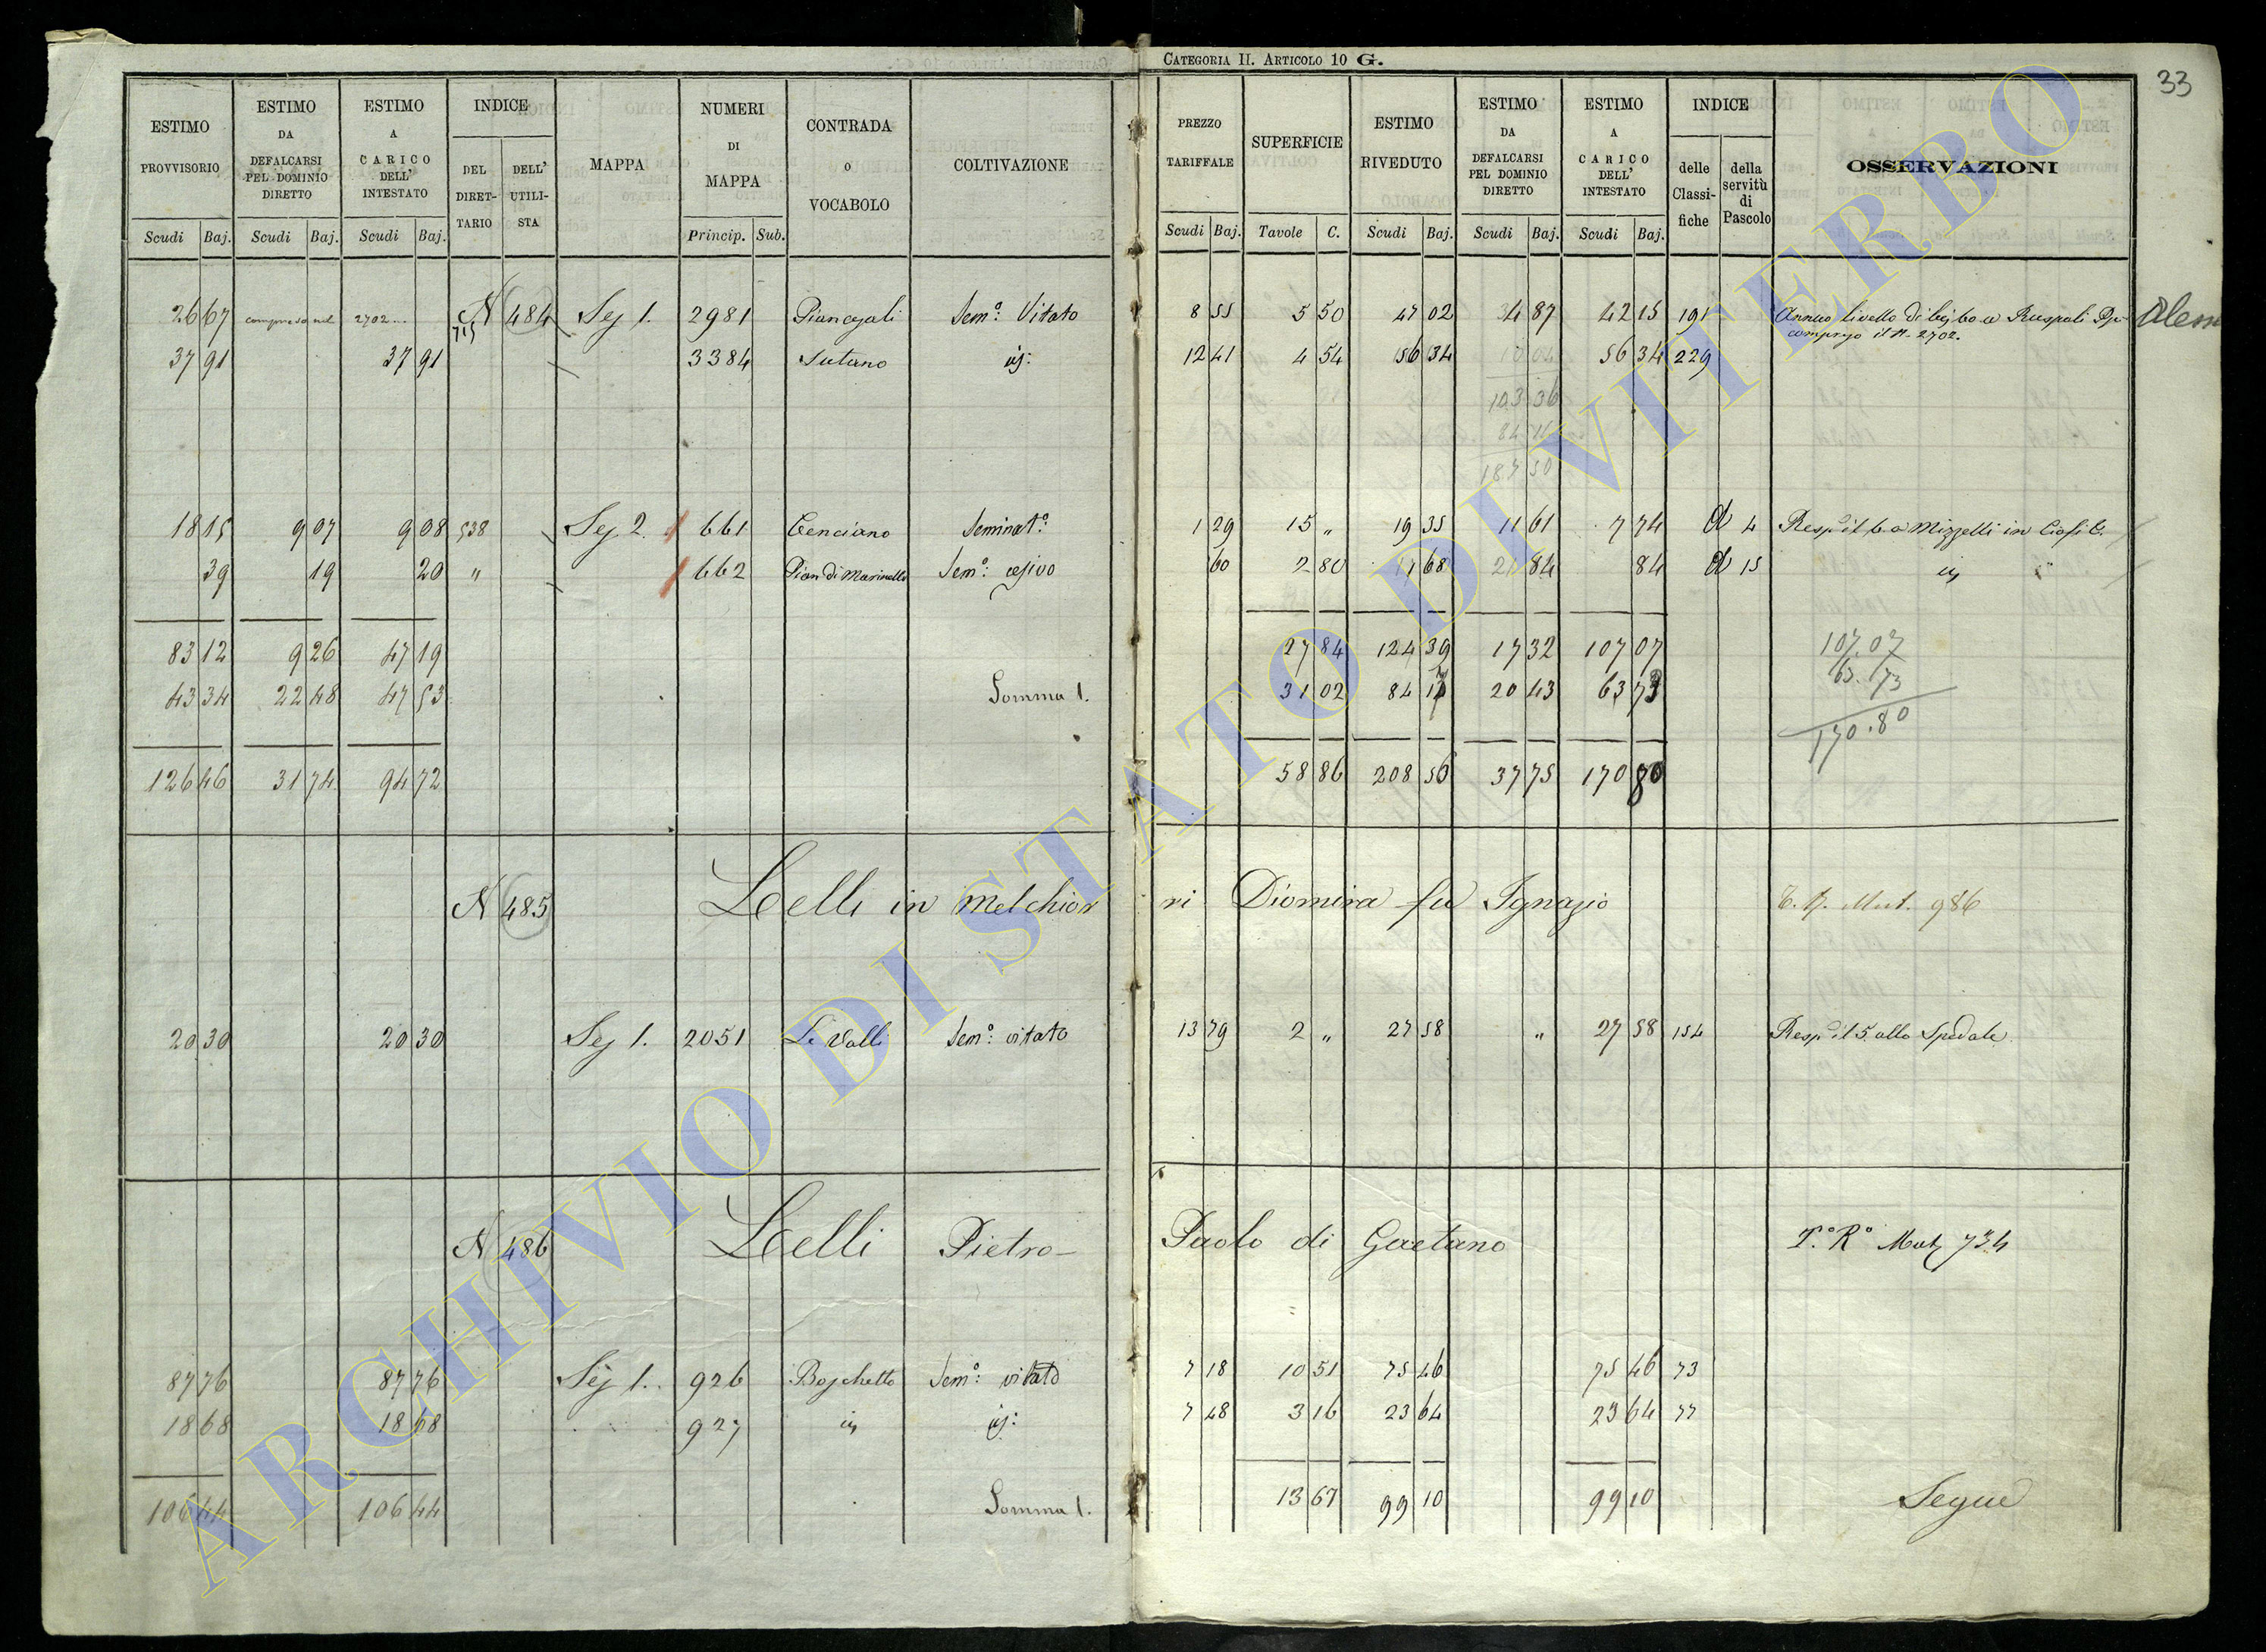 CATEGORIA II. ARTICOLO 10 G.
33
ESTIMO PROVVISORIO
ESTIMO DA DEFALCARSI PEL DOMINIO DIRETTO
ESTIMO A CARICO DELL' INTESTATO
INDICE
DEL DIRETTARIO
DELL' UTILISTA
MAPPA
NUMERI DI MAPPA
CONTRADA O VOCABOLO
COLTIVAZIONE
PREZZO TARIFFALE
SUPERFICIE
ESTIMO RIVEDUTO
ESTIMO DA DEFALCARSI PEL DOMINIO DIRETTO
ESTIMO A CARICO DELL' INTESTATO
INDICE
delle Classifiche
della servitù di Pascolo
OSSERVAZIONI
Scudi Baj. Scudi Baj. Scudi Baj. Princip. Sub. Scudi Baj. Tavole C. Scudi Baj. Scudi Baj. Scudi Baj.
26 67 compreso nel 2702 N 484 Sez 1. 2981 Sem.º Vitato 8 55 5 50 47 02 4 87 42 15 191 Annuo livello di a Ruspoli
715 compreso il N. 2702.
37 91 37 91 3384 Sutano id: 12 41 4 54 56 34 56 34 229
103 36
187 50
18 15 9 07 9 08 538 Sez 2. 661 Cenciano Seminat.º 1 29 15 " 19 35 11 61 7 74 A 4 Resp. il 6. a Mizzelli in
39 19 20 " 662 Pian di Marinello Sem.º: cesivo 60 2 80 1 68 84 84 A 15 id "
83 12 9 26 47 19 27 84 124 39 17 32 107 07 107.07
43 34 22 48 47 53 Somma 1. 31 02 84 17 20 43 63 73 63.73
126 46 31 74 94 72 58 86 208 56 37 75 170 80 170.80
N 485 Lelli in Melchiorri Diomira fu Ignazio T. N. Mut. 986
20 30 20 30 Sez 1. 2051 Le Valli Sem.º: vitato 13 79 2 " 27 58 " 27 58 154 Resp. il 5. allo Spedale
N 486 Lelli Pietro-Paolo di Gaetano T.º R.º Mut 734
87 76 87 76 Sez 1. 926 Boschetto Sem.º: vitato 7 18 10 51 75 46 75 46 73
18 68 18 68 927 id id: 7 48 3 16 23 64 23 64 77
106 44 106 44 Somma 1. 13 67 99 10 99 10 Segue
ARCHIVIO DI STATO DI VITERBO